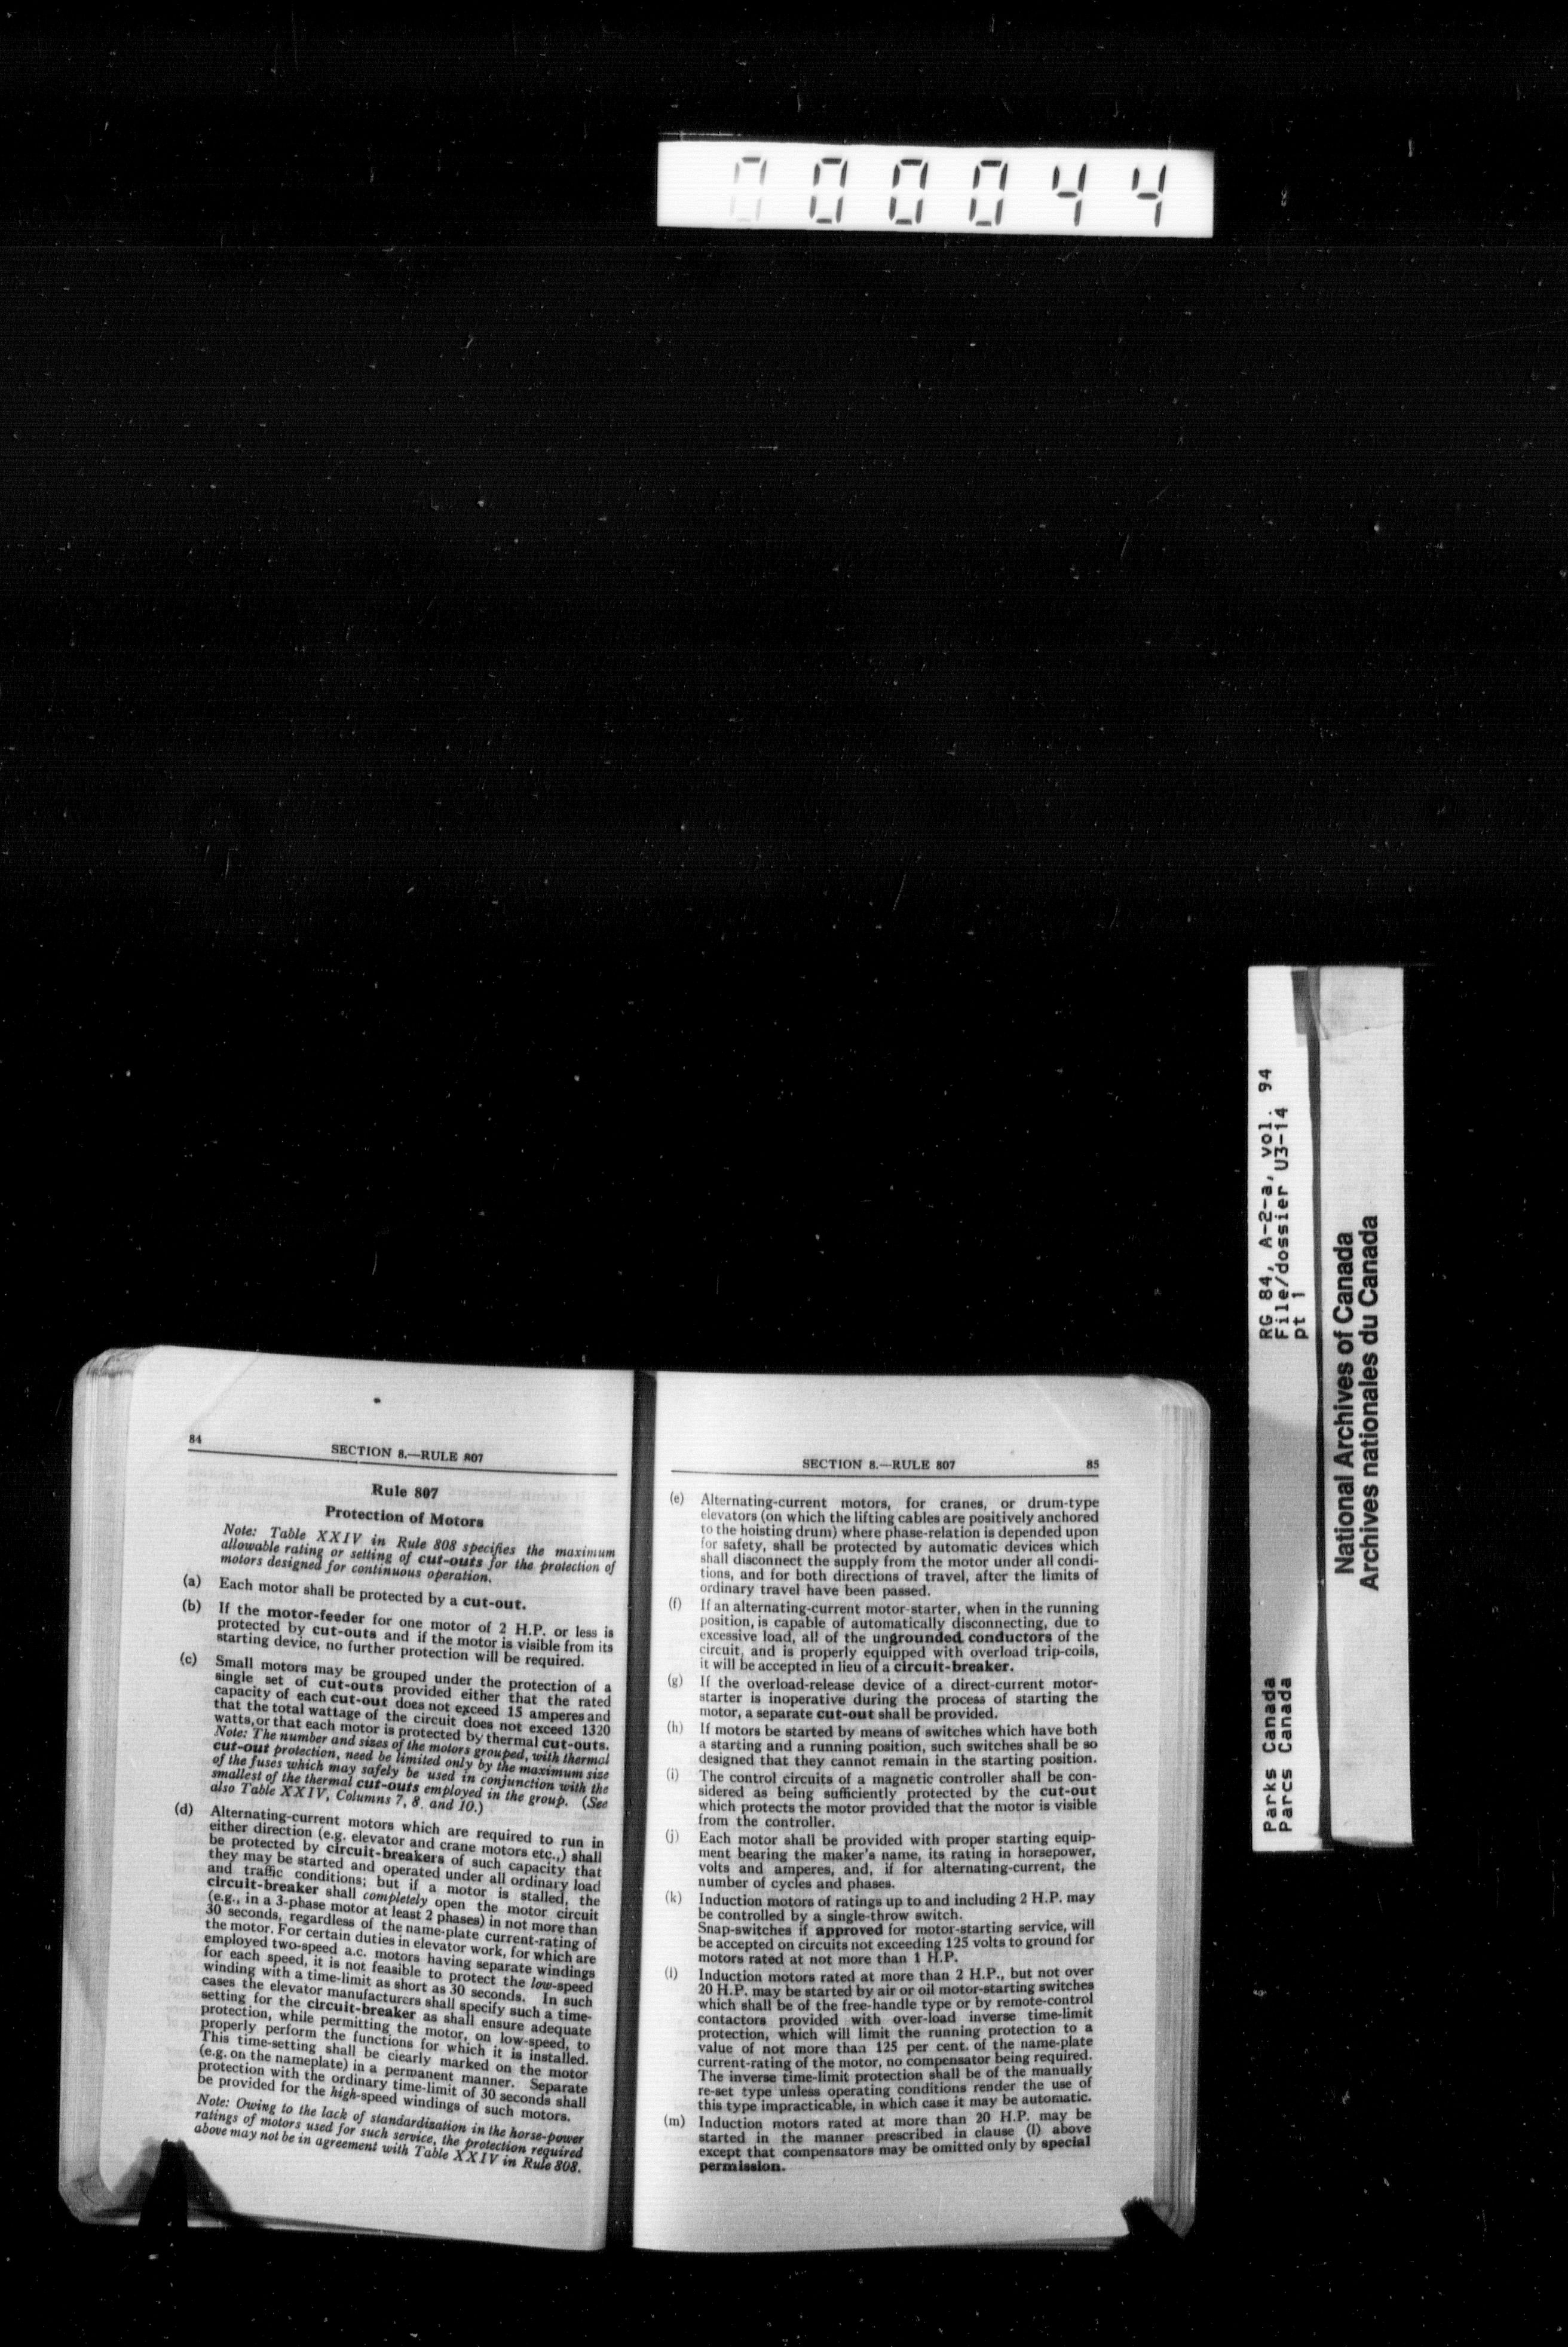 000044
84
SECTION 8.—RULE 807
Rule 807
Protection of Motors
Note: Table XXIV in Rule 808 specifies the maximum
allowable rating or setting of cut-outs for the protection of
motors designed for continuous operation.
(a) Each motor shall be protected by a cut-out.
(b) If the motor-feeder for one motor of 2 H.P. or less is
protected by cut-outs and if the motor is visible from its
starting device, no further protection will be required.
(c) Small motors may be grouped under the protection of a
single set of cut-outs provided either that the rated
capacity of each cut-out does not exceed 15 amperes and
that the total wattage of the circuit does not exceed 1320
watts, or that each motor is protected by thermal cut-outs.
Note: The number and sizes of the motors grouped, with thermal
cut-out protection, need be limited only by the maximum size
of the fuses which may safely be used in conjunction with the
smallest of the thermal cut-outs employed in the group. (See
also Table XXIV, Columns 7, 8, and 10.)
(d) Alternating-current motors which are required to run in
either direction (e.g. elevator and crane motors etc.,) shall
be protected by circuit-breakers of such capacity that
they may be started and operated under all ordinary load
and traffic conditions; but if a motor is stalled, the
circuit-breaker shall completely open the motor circuit
(e.g., in a 3-phase motor at least 2 phases) in not more than
30 seconds, regardless of the name-plate current-rating of
the motor. For certain duties in elevator work, for which are
employed two-speed a.c. motors having separate windings
for each speed, it is not feasible to protect the low-speed
winding with a time-limit as short as 30 seconds. In such
cases the elevator manufacturers shall specify such a time-
setting for the circuit-breaker as shall ensure adequate
protection, while permitting the motor, on low-speed, to
properly perform the functions for which it is installed.
This time-setting shall be clearly marked on the motor
(e.g. on the nameplate) in a permanent manner. Separate
protection with the ordinary time-limit of 30 seconds shall
be provided for the high-speed windings of such motors.
Note: Owing to the lack of standardization in the horse-power
ratings of motors used for such service, the protection required
above may not be in agreement with Table XXIV in Rule 808.
SECTION 8.—RULE 807
85
(e) Alternating-current motors, for cranes, or drum-type
elevators (on which the lifting cables are positively anchored
to the hoisting drum) where phase-relation is depended upon
for safety, shall be protected by automatic devices which
shall disconnect the supply from the motor under all condi-
tions, and for both directions of travel, after the limits of
ordinary travel have been passed.
(f) If an alternating-current motor-starter, when in the running
position, is capable of automatically disconnecting, due to
excessive load, all of the ungrounded conductors of the
circuit, and is properly equipped with overload trip-coils,
it will be accepted in lieu of a circuit-breaker.
(g) If the overload-release device of a direct-current motor-
starter is inoperative during the process of starting the
motor, a separate cut-out shall be provided.
(h) If motors be started by means of switches which have both
a starting and a running position, such switches shall be so
designed that they cannot remain in the starting position.
(i) The control circuits of a magnetic controller shall be con-
sidered as being sufficiently protected by the cut-out
which protects the motor provided that the motor is visible
from the controller.
(j) Each motor shall be provided with proper starting equip-
ment bearing the maker's name, its rating in horsepower,
volts and amperes, and, if for alternating-current, the
number of cycles and phases.
(k) Induction motors of ratings up to and including 2 H.P. may
be controlled by a single-throw switch.
Snap-switches if approved for motor-starting service, will
be accepted on circuits not exceeding 125 volts to ground for
motors rated at not more than 1 H.P.
(l) Induction motors rated at more than 2 H.P., but not over
20 H.P. may be started by air or oil motor-starting switches
which shall be of the free-handle type or by remote-control
contactors provided with over-load inverse time-limit
protection, which will limit the running protection to a
value of not more than 125 per cent. of the name-plate
current-rating of the motor, no compensator being required.
The inverse time-limit protection shall be of the manually
re-set type unless operating conditions render the use of
this type impracticable, in which case it may be automatic.
(m) Induction motors rated at more than 20 H.P. may be
started in the manner prescribed in clause (l) above
except that compensators may be omitted only by special
permission.
RG 84, A-2-a, vol. 94
File/dossier U3-14
pt 1
Parks Canada
Parcs Canada
National Archives of Canada
Archives nationales du Canada